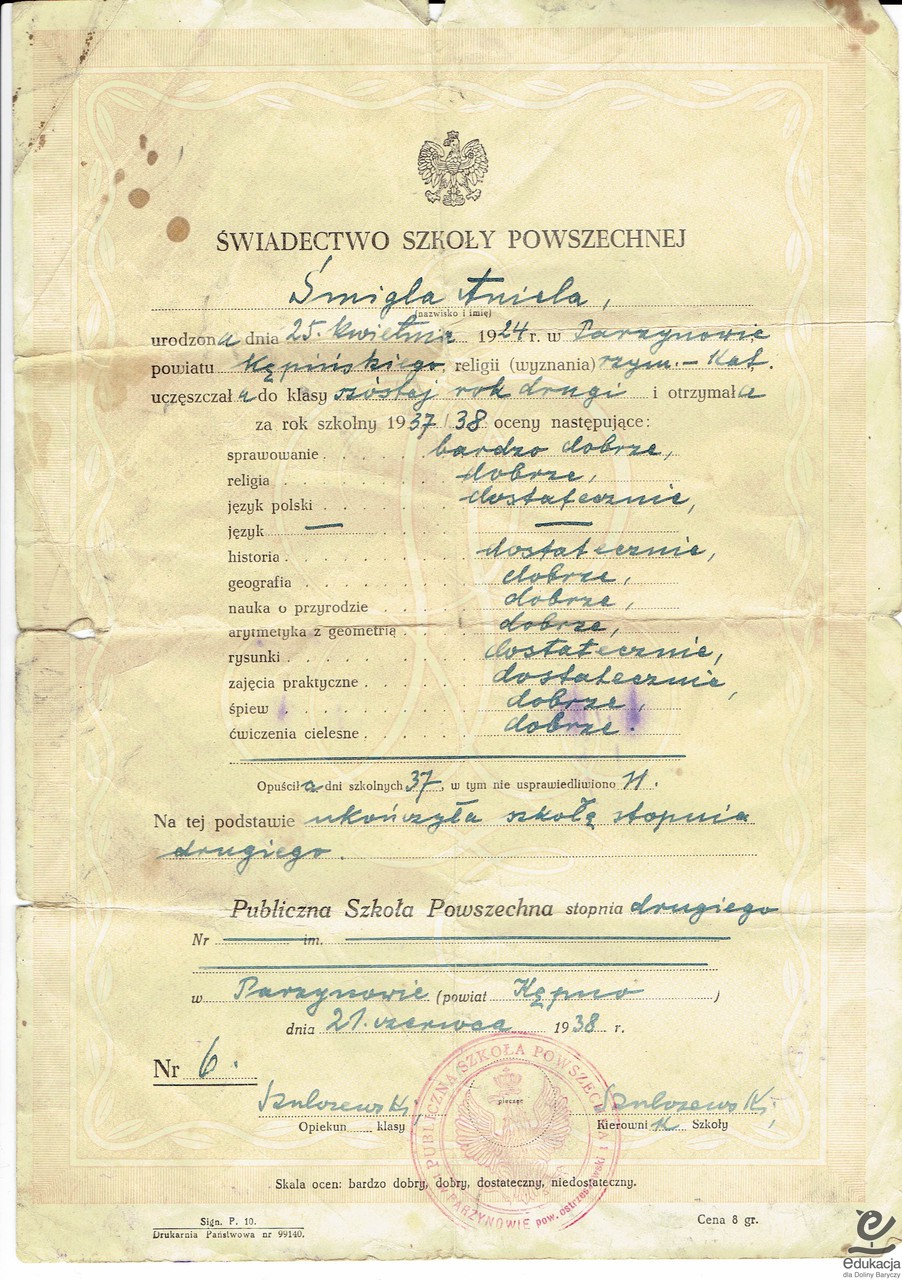 ŚWIADECTWO SZKOŁY POWSZECHNEJ
Śmigla Aniela,
(nazwisko i imię)
urodzona dnia 25. kwietnia 1924 r. w Parzynowie
powiatu Kępińskiego, religii (wyznania) rzym.-kat.
uczęszczała do klasy szóstej rok drugi i otrzymała
za rok szkolny 1937/38 oceny następujące:
sprawowanie bardzo dobrze,
religia dobrze,
język polski dostatecznie,
język — —
historia dostatecznie,
geografia dobrze,
nauka o przyrodzie dobrze,
arytmetyka z geometrią dobrze,
rysunki dostatecznie,
zajęcia praktyczne dostatecznie,
śpiew dobrze,
ćwiczenia cielesne dobrze.
Opuściła dni szkolnych 37, w tym nie usprawiedliwiono 11.
Na tej podstawie ukończyła szkołę stopnia
drugiego.
Publiczna Szkoła Powszechna stopnia drugiego
Nr — im. —
w Parzynowie (powiat Kępno)
dnia 21. czerwca 1938 r.
Nr 6.
Opiekun klasy
pieczęć
Kierownik Szkoły
PUBLICZNA SZKOŁA POWSZECHNA
W PARZYNOWIE pow. ostrzeszowski
Skala ocen: bardzo dobry, dobry, dostateczny, niedostateczny.
Sign. P. 10.
Drukarnia Państwowa nr 99140.
Cena 8 gr.
edukacja
dla Doliny Baryczy